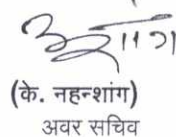 (के. नहन्शांग)
अवर सचिव